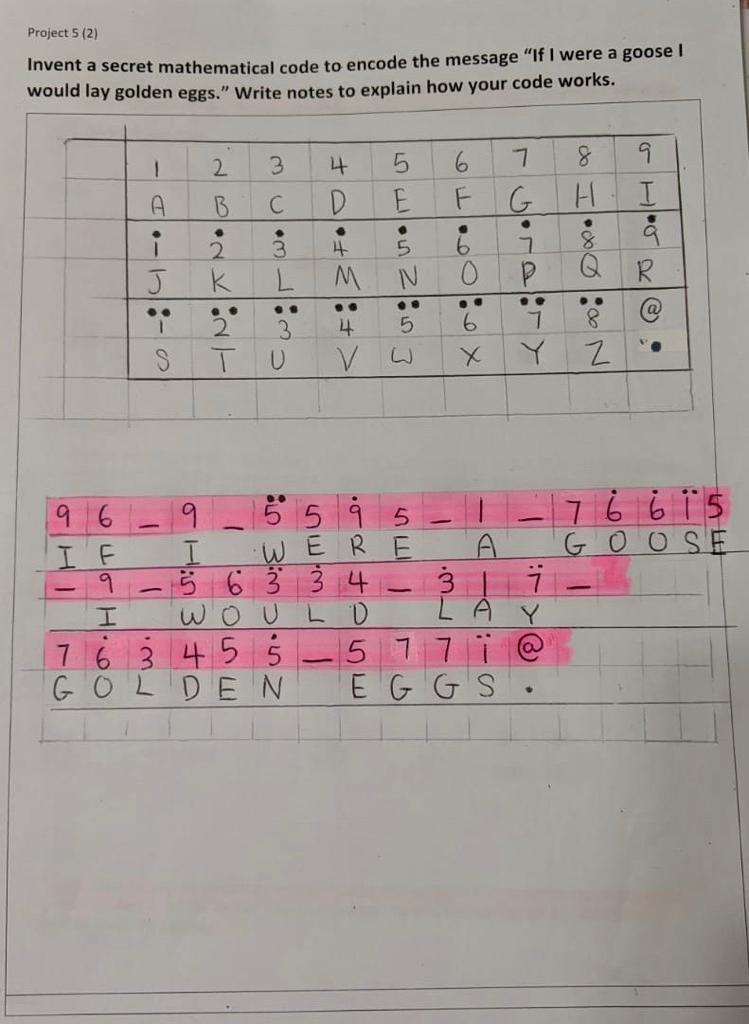 Project 5 (2)
Invent a secret mathematical code to encode the message “If I were a goose I
would lay golden eggs.” Write notes to explain how your code works.
1 2 3 4 5 6 7 8 9
A B C D E F G H I
1̇ 2̇ 3̇ 4̇ 5̇ 6̇ 7̇ 8̇ 9̇
J K L M N O P Q R
1̈ 2̈ 3̈ 4̈ 5̈ 6̈ 7̈ 8̈ @
S T U V W X Y Z .
9 6 _ 9 _ 5̈ 5 9̇ 5 _ 1 _ 7 6̇ 6̇ 1̈ 5
I F I W E R E A G O O S E
_ 9 _ 5̈ 6̇ 3̈ 3̇ 4 _ 3̇ 1 7̈ _
I W O U L D L A Y
7 6̇ 3̇ 4 5 5̇ _ 5 7 7 1̈ @
G O L D E N E G G S .